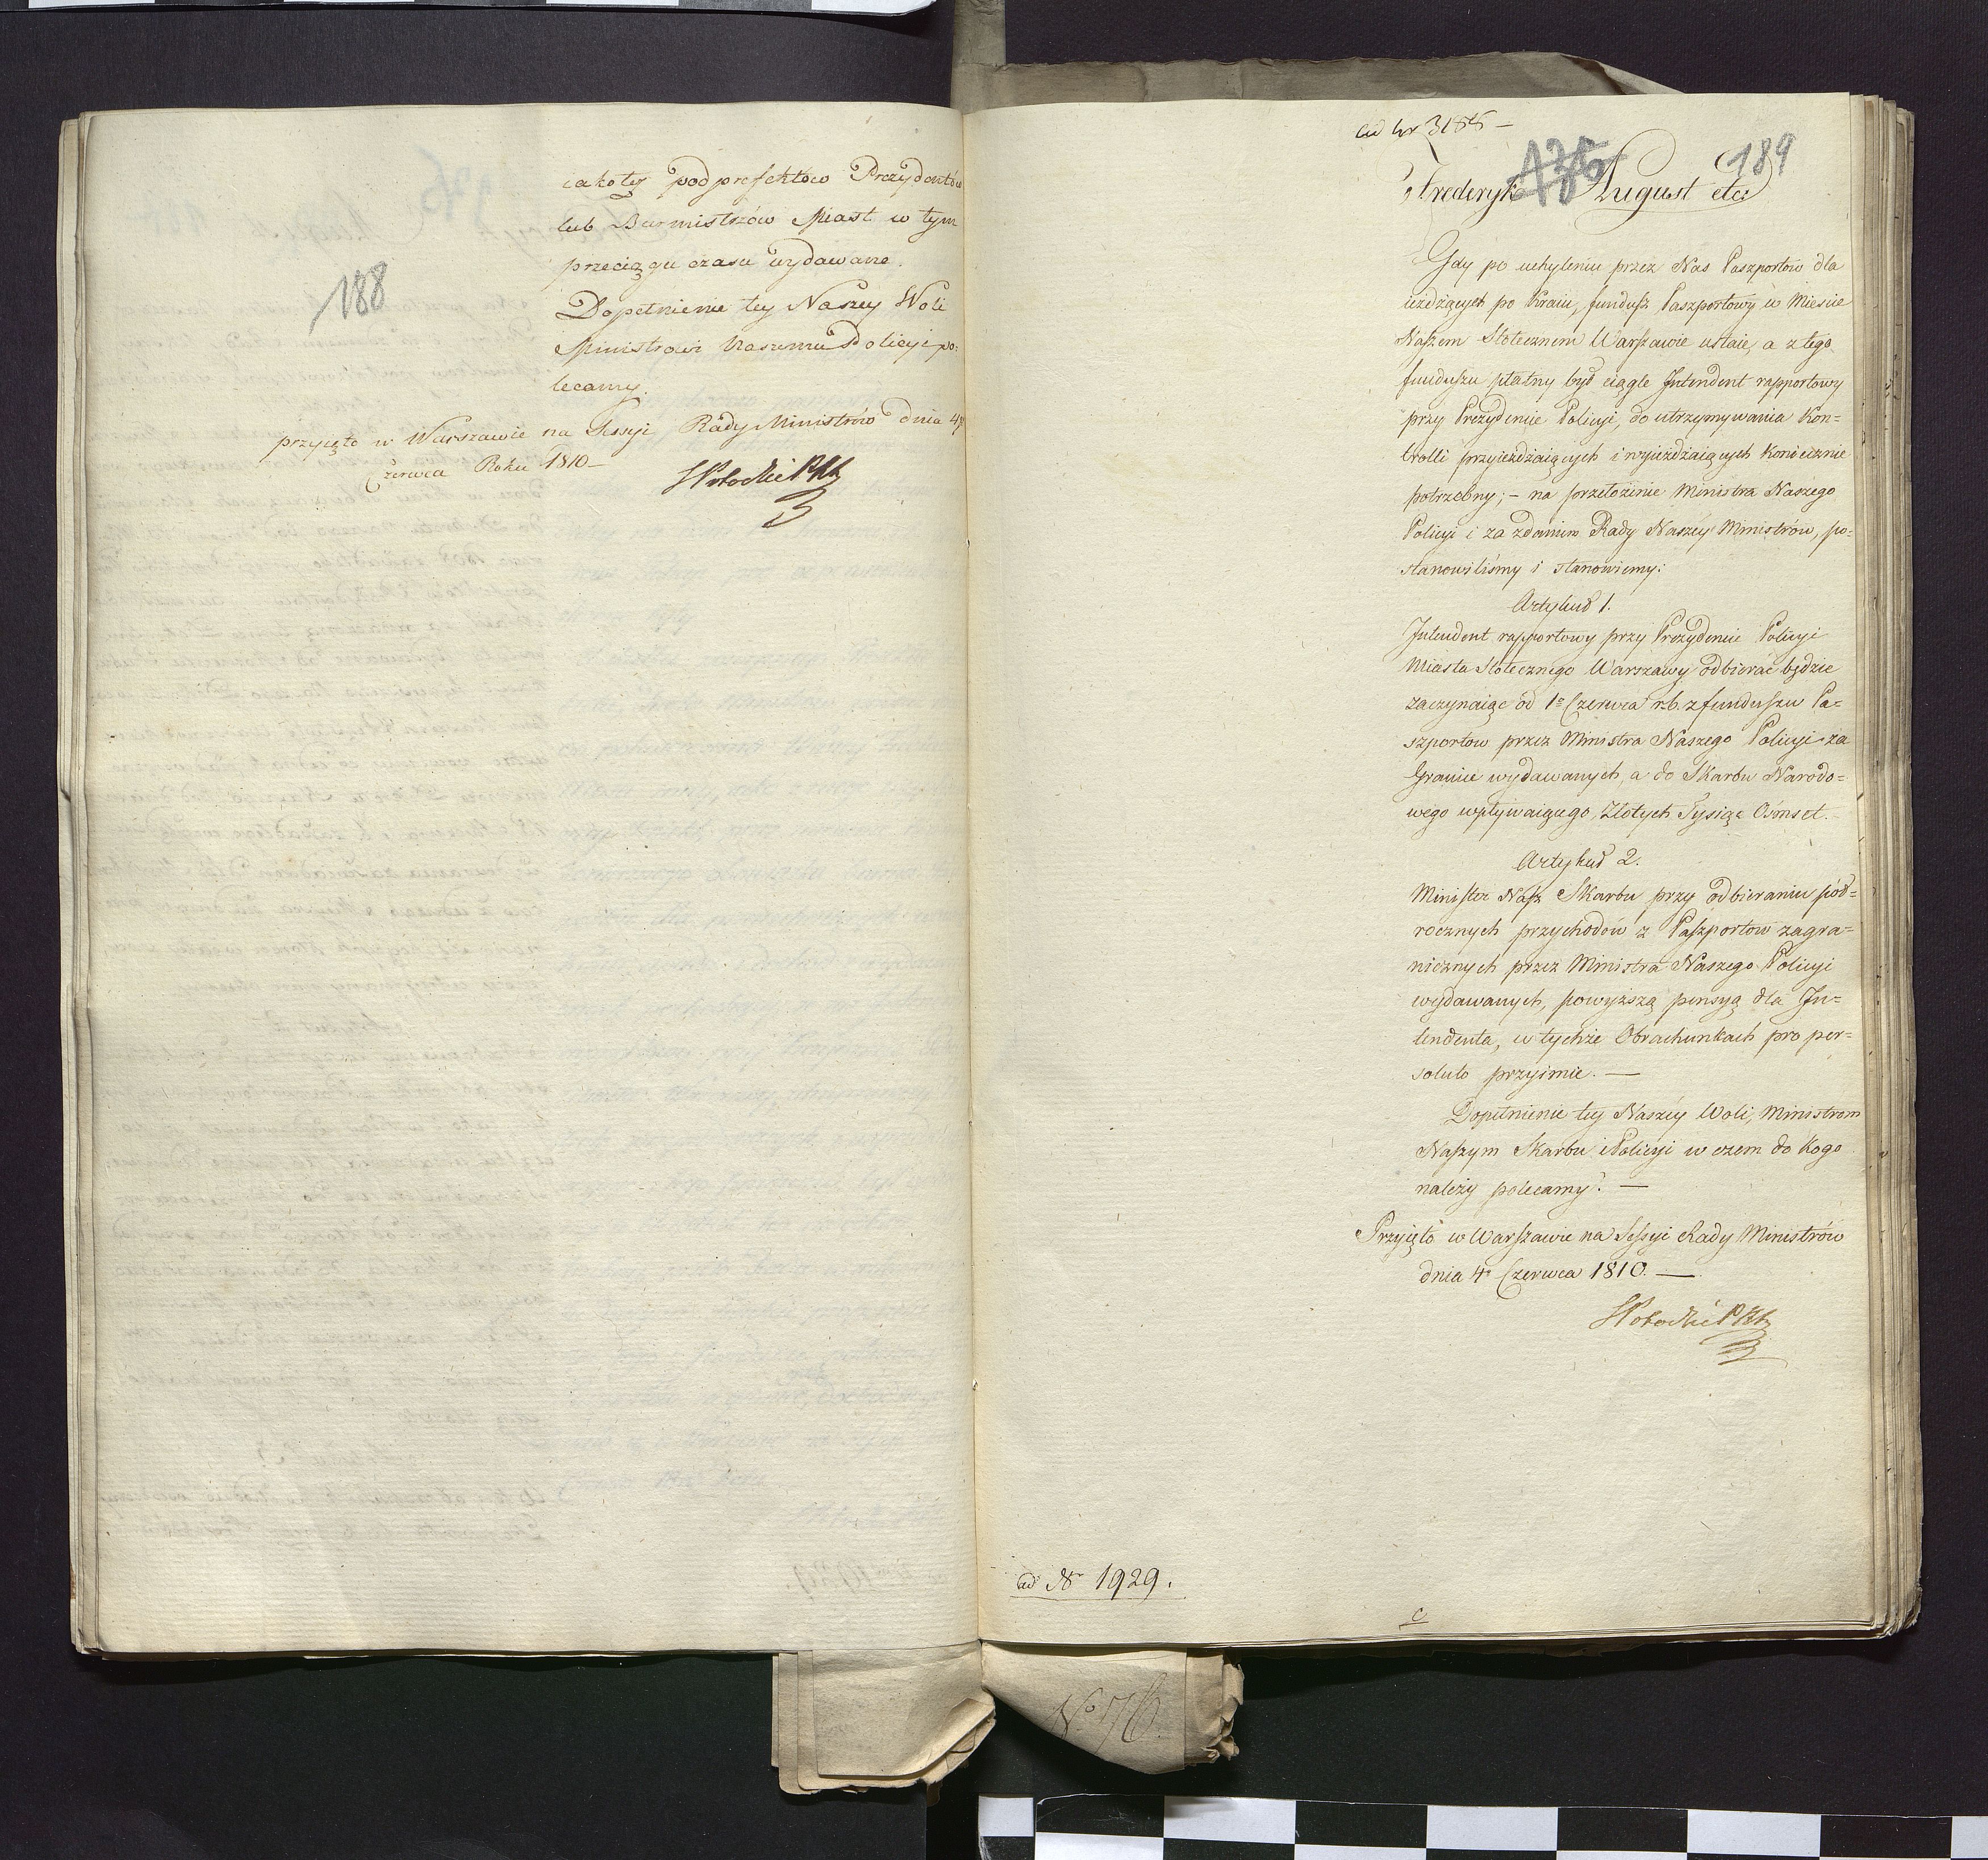 iakoteż podprefektów Prezydentów
lub Burmistrzów Miast w tym
przeciągu czasu wydawane.
188
Dopełnienie tey Naszey Woli
Ministrowi Naszemu Policyi po:
lecamy.
przyięto w Warszawie na Sessyi Rady Ministrów dnia 4
Czerwca Roku 1810 —
SPotocki
ad Nr 3188 —
189
Frederyk August etc:
Gdy po uchyleniu przez Nas Paszportów dla
ieżdżących po Kraiu, fundusz Paszportowy w Mieście
Naszem Stołecznem Warszawie ustaie, a z tego
funduszu płatny był ciągle Intendent rapportowy
przy Prezydencie Policyi, do utrzymywania Kon=
trolli przyieżdżaiących i wyieżdżaiących Koniecznie
potrzebny; – na przełożenie Ministra Naszego
Policyi i za zdaniem Rady Naszéy Ministrów, po=
stanowiliśmy i stanowiemy:
Artykuł 1.
Intendent rapportowy przy Prezydencie Policyi
Miasta Stołecznego Warszawy odbierać będzie
zaczynaiąc od 1 Czerwca r.b. z funduszu Pa=
szportow przez Ministra Naszego Policyi za
Granice wydawanych, a do Skarbu Narodo=
wego wpływaiącego, Złotych Tysiąc Ośmset. –
Artykuł 2.
Minister Nasz Skarbu przy odbieraniu pół=
rocznych przychodów z Paszportow zagra=
nicznych przez Ministra Naszego Policyi
wydawanych, powyższą pensyą dla In=
tendenta, w tychże Obrachunkach pro per=
soluto przyimie. —
Dopełnienie tey Naszéy Woli, Ministrom
Naszym Skarbu i Policyi w czem do Kogo
należy polecamy. —
Przyięto w Warszawie na Sessyi Rady Ministrów
dnia 4 Czerwca 1810. —
SPotocki
ad Nr 1929.
c
No 76.